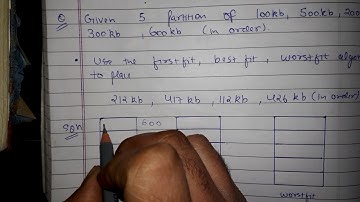 Q Given 5 partition of 100kb, 500kb, 200
300kb , 600kb (in order).
• Use the first fit, best fit , worst fit algo
to place
212 kb , 417 kb , 112 kb , 426 kb (in order)
Soln
600
worstfit